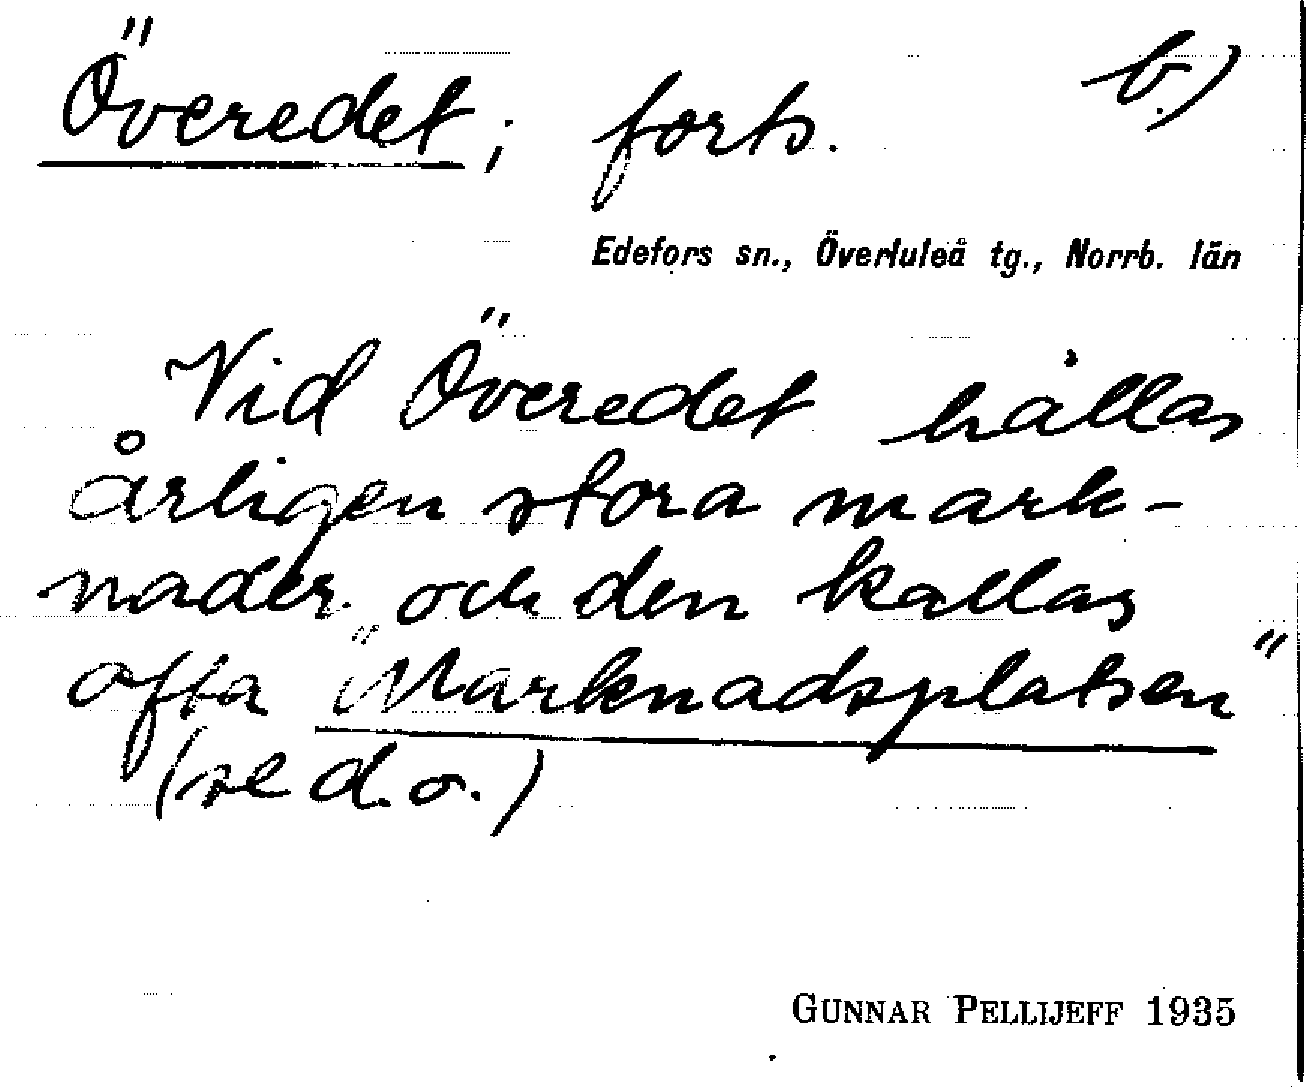 Överedet; forts. b.)
Edefors sn., Överluleå tg., Norrb. län
Vid Överedet hållas
årligen stora mark-
nader och den kallas
ofta "Marknadsplatsen"
(se d.o.)
GUNNAR PELLIJEFF 1935